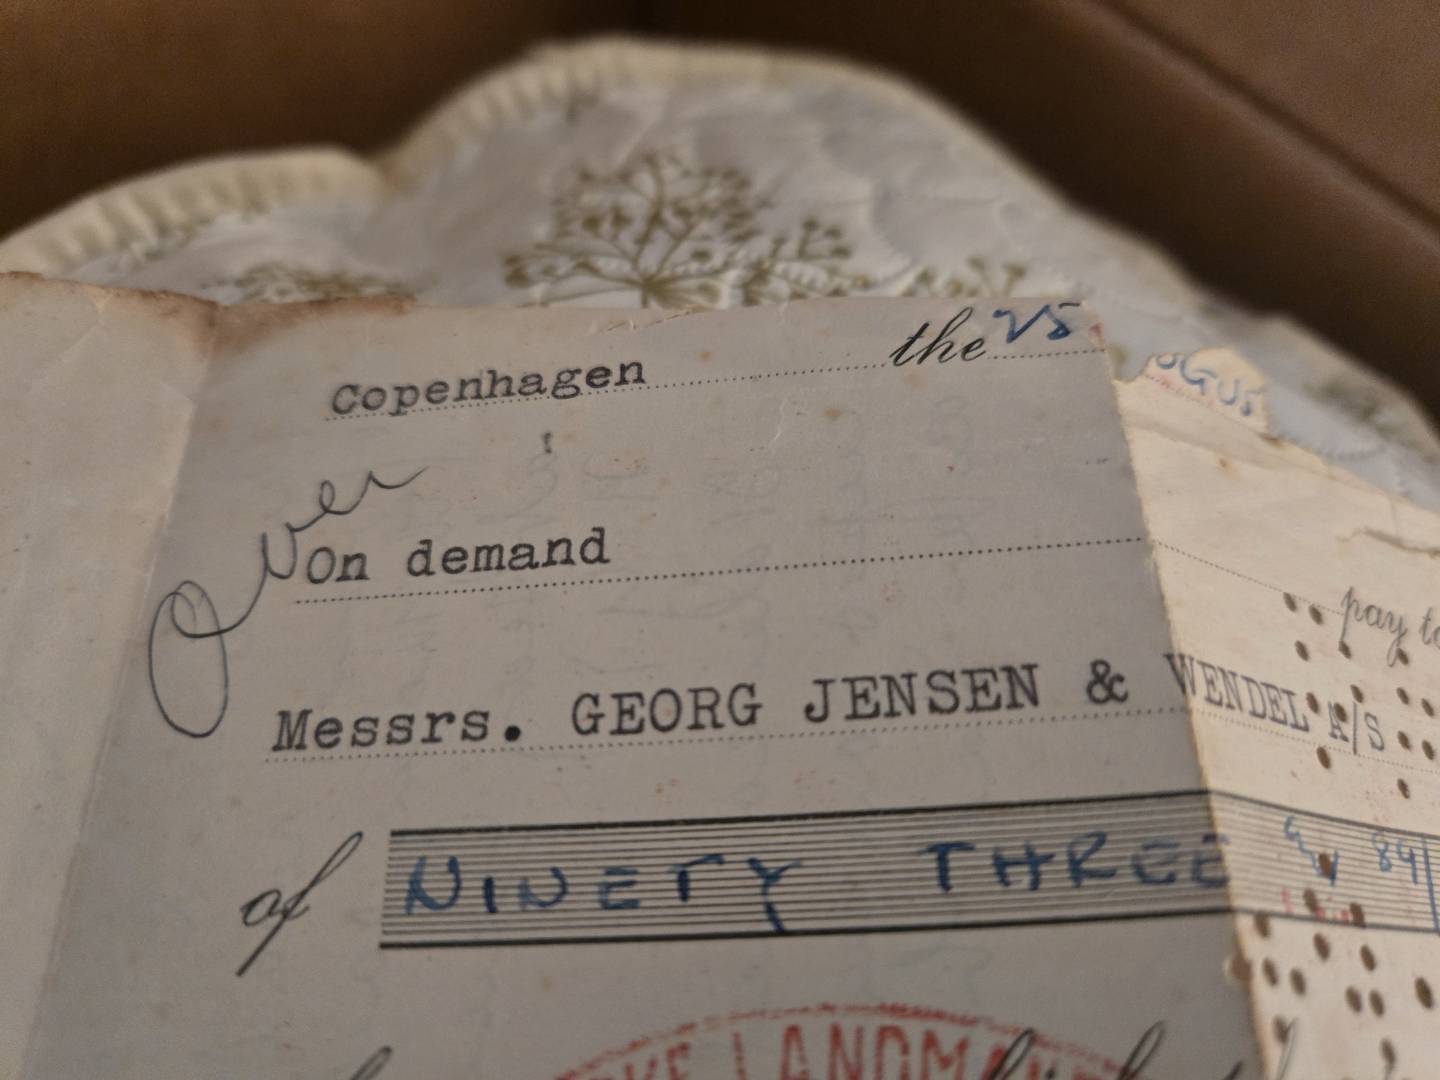 Copenhagen the 25
UGUS
Over
On demand pay to
Messrs. GEORG JENSEN & WENDEL A/S
of NINETY THREE & 84/
LANDMA